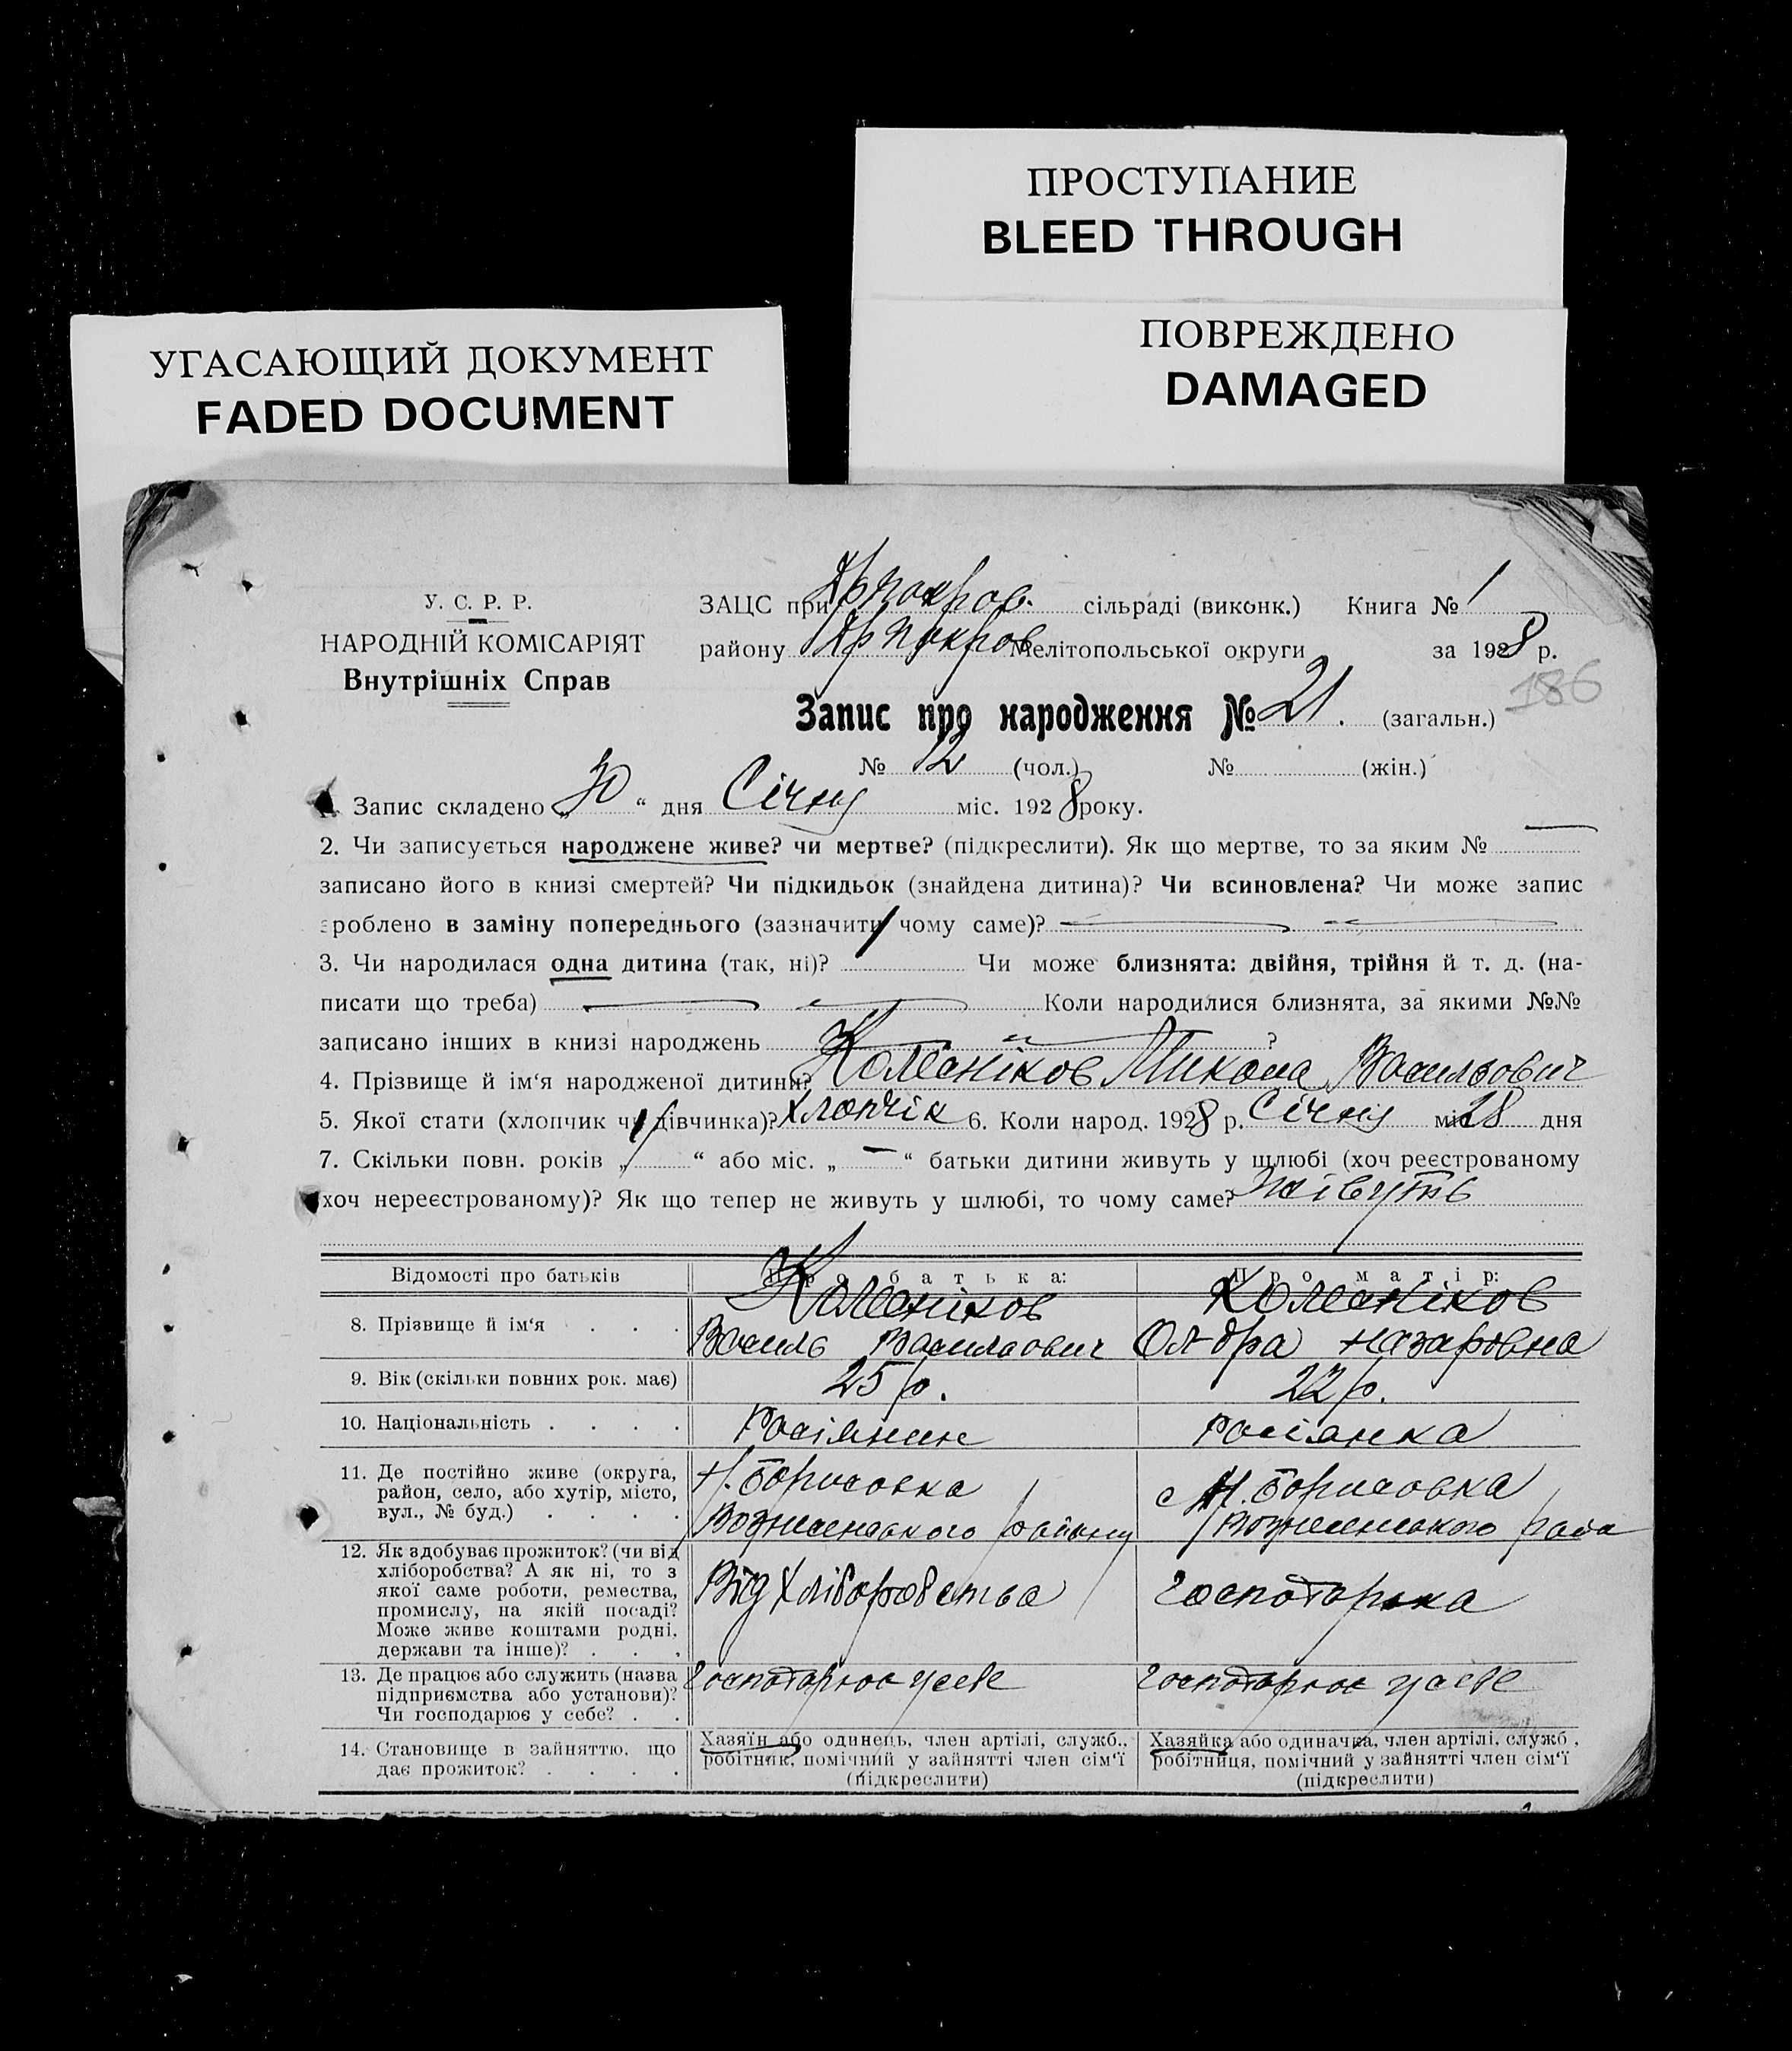 ПРОСТУПАНИЕ
BLEED THROUGH
ПОВРЕЖДЕНО
DAMAGED
УГАСАЮЩИЙ ДОКУМЕНТ
FADED DOCUMENT
У. С. Р. Р.
НАРОДНІЙ КОМІСАРІЯТ
Внутрішніх Справ
ЗАЦС при сільраді (виконк.) Книга № 1
району Мелітопольської округи за 1928 р.
186
Запис про народження № 21. (загальн.)
№ 12 (чол.) № (жін.)
1. Запис складено „30“ дня Січня міс. 1928 року.
2. Чи записується народжене живе? чи мертве? (підкреслити). Як що мертве, то за яким № —
записано його в книзі смертей? Чи підкидьок (знайдена дитина)? Чи всиновлена? Чи може запис
зроблено в заміну попереднього (зазначити чому саме)?
3. Чи народилася одна дитина (так, ні)? Чи може близнята: двійня, трійня й т. д. (на-
писати що треба) Коли народилися близнята, за якими №№
записано інших в книзі народжень ?
4. Прізвище й ім‘я народженої дитини? Колесніков Микола Васильович
5. Якої стати (хлопчик чи дівчинка)? хлопчік 6. Коли народ. 1928 р. Січня міс. 28 дня
7. Скільки повн. років „ “ або міс. „ — “ батьки дитини живуть у шлюбі (хоч реєстрованому
хоч нереєстрованому)? Як що тепер не живуть у шлюбі, то чому саме? Живуть
Відомості про батьків Про батька: Про матір:
8. Прізвище й ім‘я Колесніков Колесніков
Василь Васильович Ол-дра Назаровна
9. Вік (скільки повних рок. має) 25 р. 22 р.
10. Національність Росіянин Росіянка
11. Де постійно живе (округа, район, село, або хутір, місто, вул., № буд.)
Н. Борисовка с Н. Борисовка
Вознесенського району Вознесенського
12. Як здобуває прожиток? (чи від хліборобства? А як ні, то з якої саме роботи, ремества, промислу, на якій посаді? Може живе коштами родні, держави та інше)?
Від хліборобства Господарька
13. Де працює або служить (назва підприємства або установи)? Чи господарює у себе?
Господарює у себе Господарює у себе
14. Становище в зайняттю, що дає прожиток?
Хазяїн або одинець, член артілі, служб., робітник, помічний у зайнятті член сім‘ї (підкреслити)
Хазяйка або одиначка, член артілі, служб., робітниця, помічний у зайнятті член сім‘ї (підкреслити)